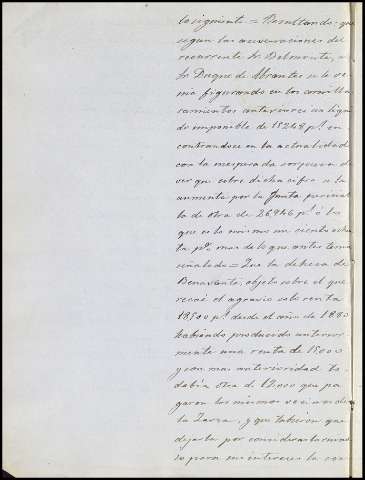 lo siguiente = Resultando: que
segun las aseveraciones del
recurrente Sr. Delmonte, al
Sr Duque de Abrantes se le ve-
nia figurando en los amilla-
ramientos anteriores un liqui-
do imponible de 15248 p.s en
contrandose en la actualidad
con la inesperada sorpresa de
ver que sobre dicha cifra se le
aumenta por la Junta pericial
la de otra de 26,946 p.s ó lo
que es lo mismo un ciento ochen
ta p.% mas de lo que antes tenia
señalado = Que la dehesa de
Benavente, objeto sobre el que
recae el agravio solo renta
18,500 p.s desde el año de 1880
habiendo producido anterior-
mente una renta de 15000
y con mas anterioridad to-
dabia otra de 12000 que pa
garon los mismos vecinos de
la Zarza, y que tubieron que
dejarla por considerarla rui